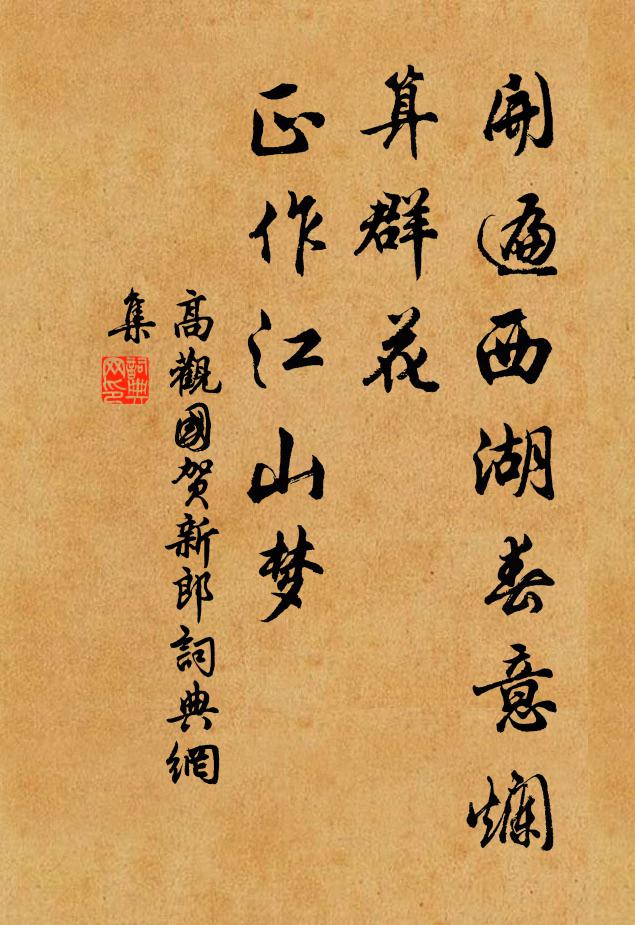 開遍西湖春意爛
算群花
正作江山梦
高觀國賀新郎詞典網
集
詞典
网印